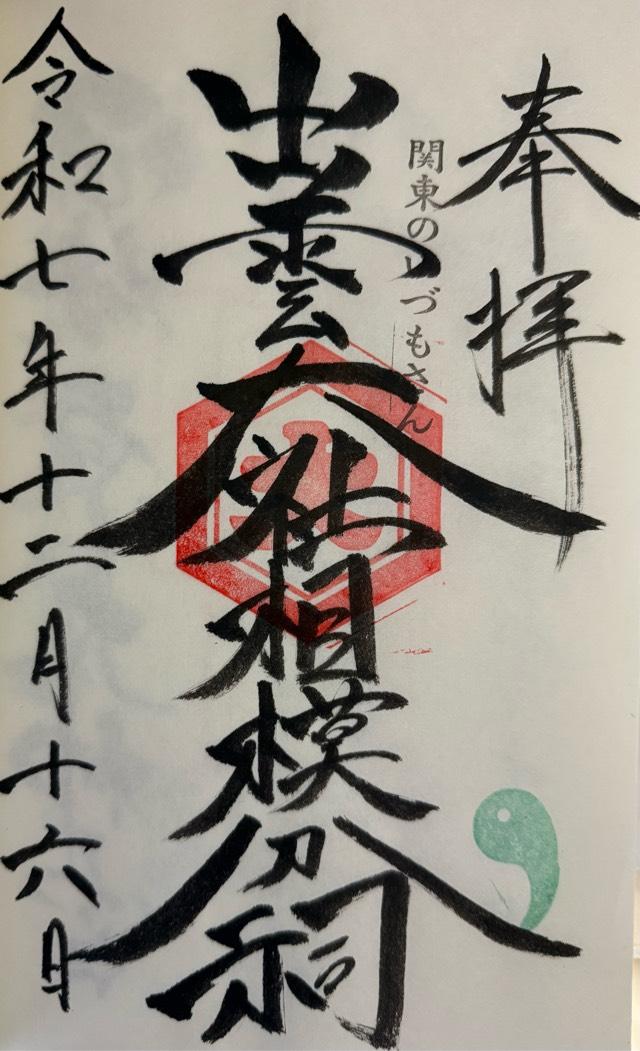 奉拝
関東のいづもさん
出雲大社相模分祠
令和七年十二月十六日